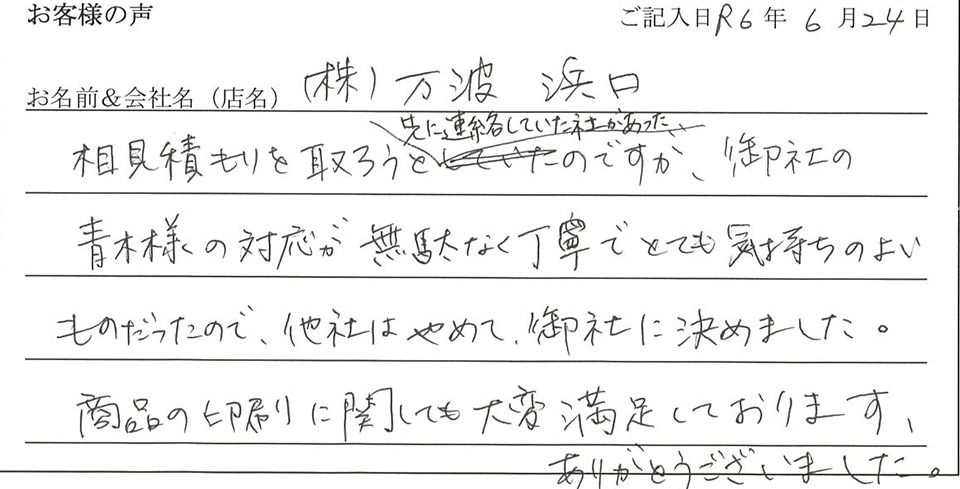 お客様の声
ご記入日 R6年 6月24日
お名前＆会社名（店名）（株）万波 浜口
先に連絡していた社があった
相見積もりを取ろうとのですが、御社の
青木様の対応が無駄なく丁寧でとても気持ちのよい
ものだったので、他社はやめて、御社に決めました。
商品の印刷りに関しても大変満足しております、
ありがとうございました。